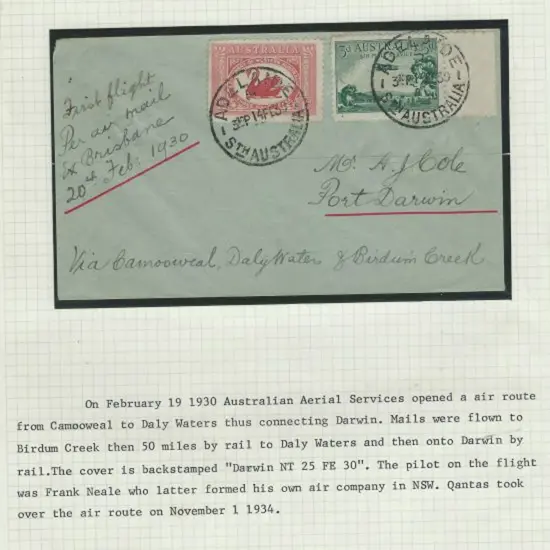 First flight
Per air mail
Ex Brisbane
20th Feb: 1930
AUSTRALIA
3d AUSTRALIA 3d
ADELAIDE
STH AUSTRALIA
ADELAIDE
STH AUSTRALIA
Mr. A J Cole
Port Darwin
Via Camooweal, Daly Waters & Birdum Creek
On February 19 1930 Australian Aerial Services opened a air route
from Camooweal to Daly Waters thus connecting Darwin. Mails were flown to
Birdum Creek then 50 miles by rail to Daly Waters and then onto Darwin by
rail.The cover is backstamped "Darwin NT 25 FE 30". The pilot on the flight
was Frank Neale who latter formed his own air company in NSW. Qantas took
over the air route on November 1 1934.